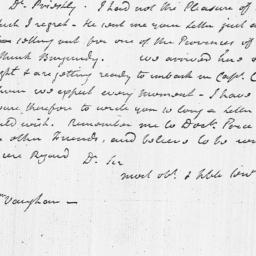 Dr. Priestly. I had not the Pleasure of
ch I regret - He sent me your Letter just a
setting out for one of the Provinces of
think Burgundy. We arrived here
ght & are getting ready to embark in Capt. C
whom we expect every Moment - I have
therefore to write you so long a Letter
ld wish. Remember me to Doctr. Price
other Friends, and believe to be
ere Regard Dr. Sir
most obt. & hble
Vaughan -